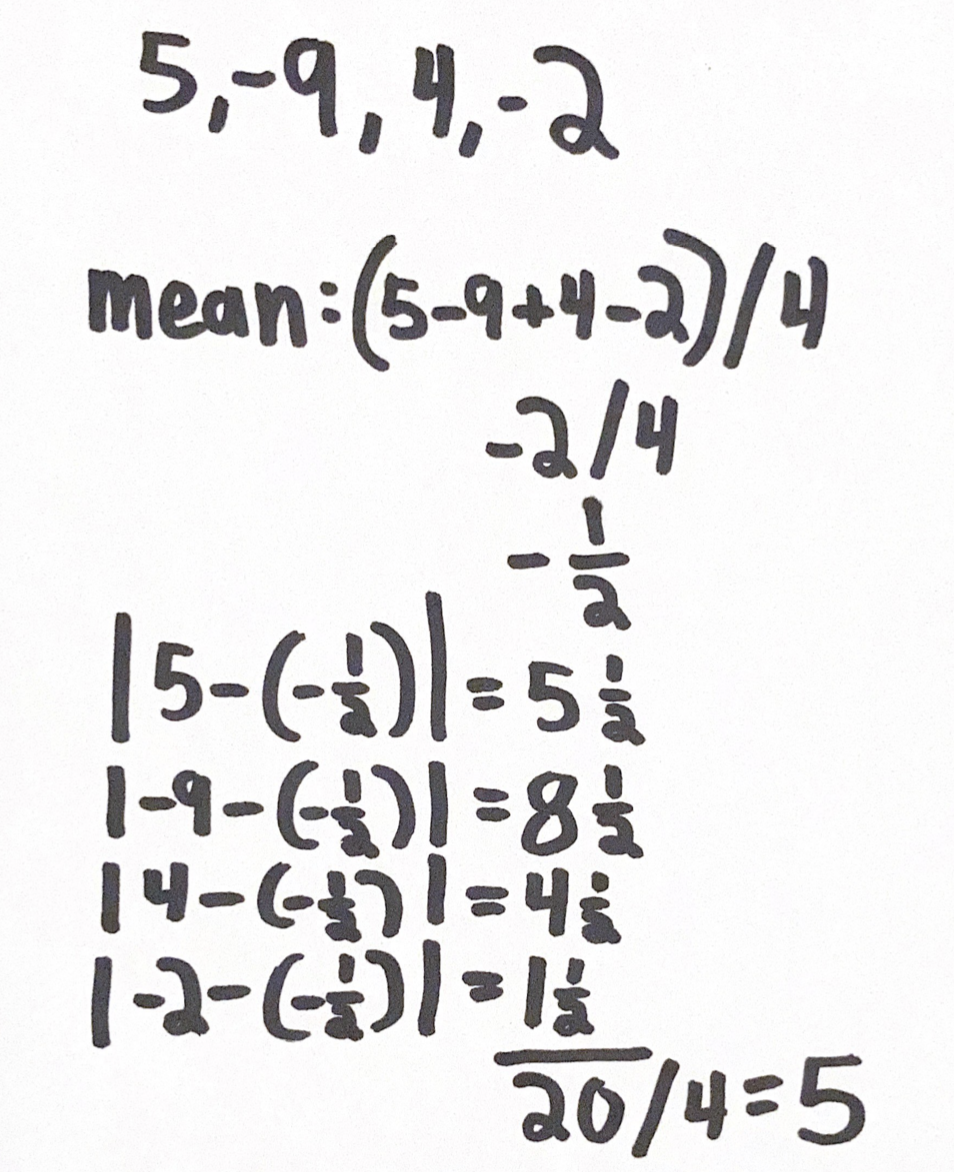 5, -9, 4, -2
mean: (5-9+4-2)/4
-2/4
-1/2
|5-(-1/2)| = 5 1/2
|-9-(-1/2)| = 8 1/2
|4-(-1/2)| = 4 1/2
|-2-(-1/2)| = 1 1/2
20/4=5